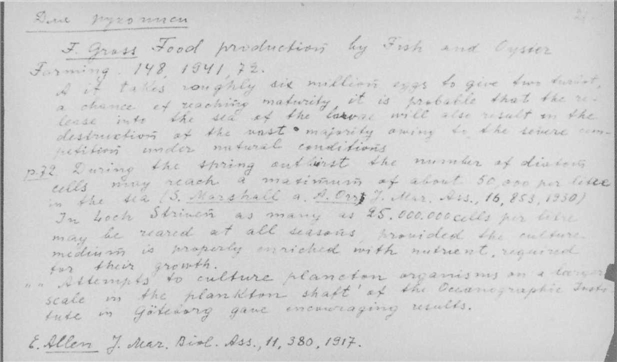 Для рукописи
F. Gross Food production by Fish and Oyster
Farming. 148, 1941, 72.
A it takes roughly six million eggs to give two
a chance of reaching maturity, it is probable that the re-
lease into the sea of the larvae will also result in the
destruction of the vast majority owing to the severe com-
petition under natural conditions
p.72. During the spring outburst the number of diatom
cells may reach a maximum of about 50,000 per litre
in the sea (S. Marshall a. A. Orr, J. Mar. Ass., 16, 853, 1930)
In Loch Striven as many as 25.000.000 cells per litre
may be reared at all seasons, provided the culture
medium is properly enriched with nutrient, required
for their growth.
" " Attempts to culture plancton organisms on a larger
scale in the "plankton shaft" of the Oceanographic Insti
tute in Göteborg gave encouraging results.
E. Allen J. Mar. Biol. Ass., 11, 380, 1917.